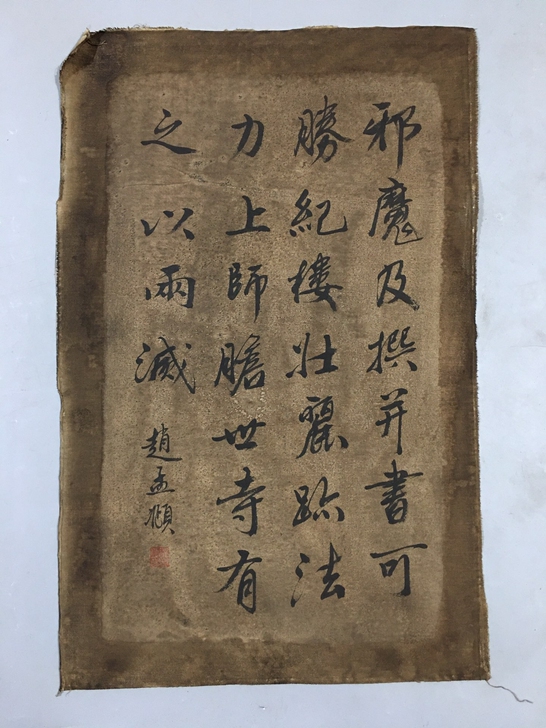 邪魔及撰并書可
勝紀樓壯麗跡法
力上師膽世寺有
之以兩滅
趙孟頫